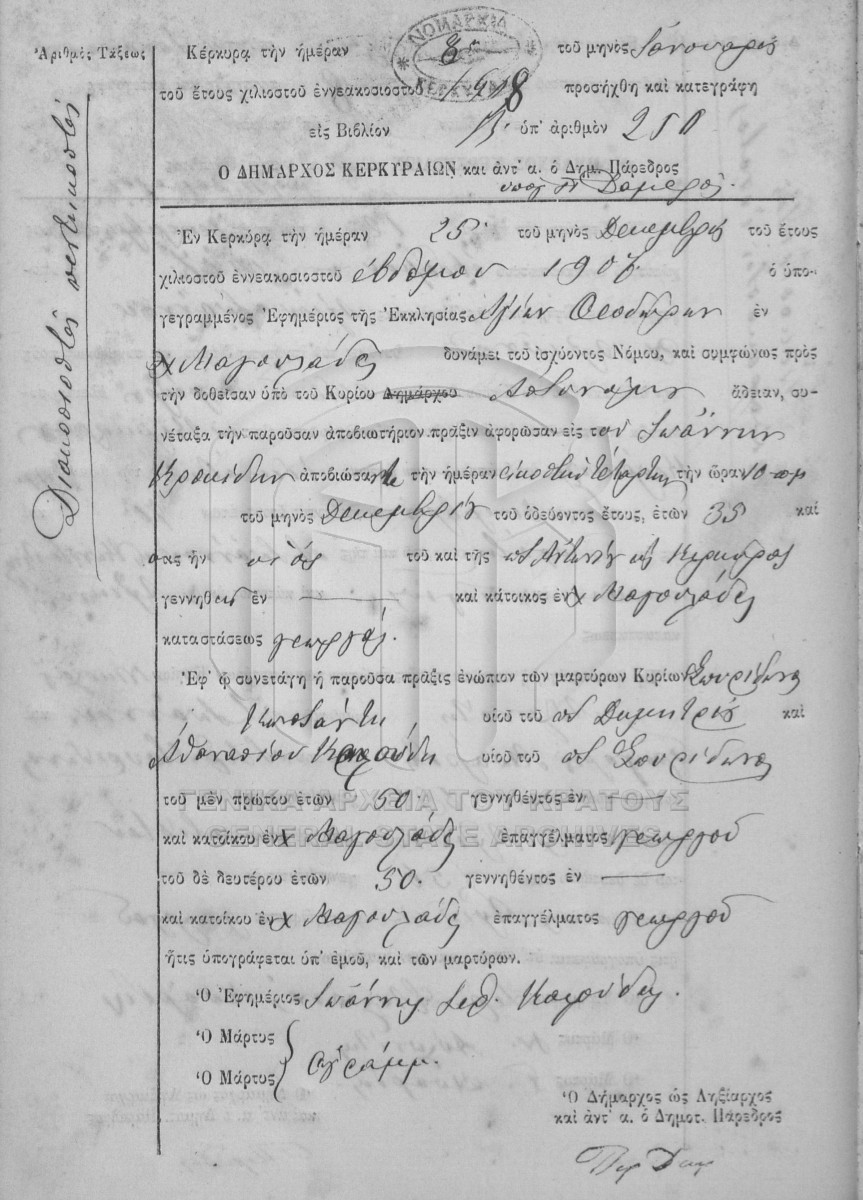 Ἀριθμὸς Τάξεως
Διακόσιοστὸς πεντηκοστὸς
ΝΟΜΑΡΧΙΑ
ΚΕΡΚΥΡΑΣ
Κέρκυρα τὴν ἡμέραν 8 τοῦ μηνὸς Ἰανουαρίου
τοῦ ἔτους χιλιοστοῦ ἐννεακοσιοστοῦ 1908 προσήχθη καὶ κατεγράφη
εἰς Βιβλίον ὑπ' ἀριθμὸν 250
Ὁ ΔΗΜΑΡΧΟΣ ΚΕΡΚΥΡΑΙΩΝ καὶ ἀντ' α. ὁ Δημ. Πάρεδρος
Ἐν Κερκύρᾳ τὴν ἡμέραν 25 τοῦ μηνὸς Δεκεμβρίου τοῦ ἔτους
χιλιοστοῦ ἐννεακοσιοστοῦ ἑβδόμου 1907 ὁ ὑπο-
γεγραμμένος Ἐφημέριος τῆς Ἐκκλησίας Ἁγίων Θεοδώρων ἐν
χ Μαγουλάδες δυνάμει τοῦ ἰσχύοντος Νόμου, καὶ συμφώνως πρὸς
τὴν δοθεῖσαν ὑπὸ τοῦ Κυρίου Δημάρχου Ἀστυνόμου ἄδειαν, συ-
νέταξα τὴν παροῦσαν ἀποβιωτήριον πρᾶξιν ἀφορῶσαν εἰς τὸν Ἰωάννην
Κροκίδην ἀποβιώσαντα τὴν ἡμέραν εἰκοστὴν τετάρτην τὴν ὥραν 10 πμ
τοῦ μηνὸς Δεκεμβρίου τοῦ ὁδεύοντος ἔτους, ἐτῶν 35 καὶ
σας ἦν υἱὸς τοῦ καὶ τῆς π Ἀντωνίου
γεννηθεὶς ἐν — καὶ κάτοικος ἐν χ Μαγουλάδες
καταστάσεως γεωργός.
Ἐφ' ᾧ συνετάγη ἡ παροῦσα πρᾶξις ἐνώπιον τῶν μαρτύρων Κυρίων Σπυρίδωνα
υἱοῦ τοῦ π Δημητρίου καὶ
Ἀθανασίου υἱοῦ τοῦ π Σπυρίδωνος
τοῦ μὲν πρώτου ἐτῶν 50 γεννηθέντος ἐν —
καὶ κατοίκου ἐν χ Μαγουλάδες ἐπαγγέλματος γεωργοῦ
τοῦ δὲ δευτέρου ἐτῶν 50. γεννηθέντος ἐν —
καὶ κατοίκου ἐν χ Μαγουλάδες ἐπαγγέλματος γεωργοῦ
ἥτις ὑπογράφεται ὑπ' ἐμοῦ, καὶ τῶν μαρτύρων.
Ὁ Ἐφημέριος Ἰωάννης Ἱερ. Καλούδης.
Ὁ Μάρτυς
Ἀγράμμ.
Ὁ Μάρτυς
Ὁ Δήμαρχος ὡς Ληξίαρχος
καὶ ἀντ' α. ὁ Δημοτ. Πάρεδρος
ΓΕΝΙΚΑ ΑΡΧΕΙΑ ΤΟΥ ΚΡΑΤΟΥΣ
GENERAL STATE ARCHIVES